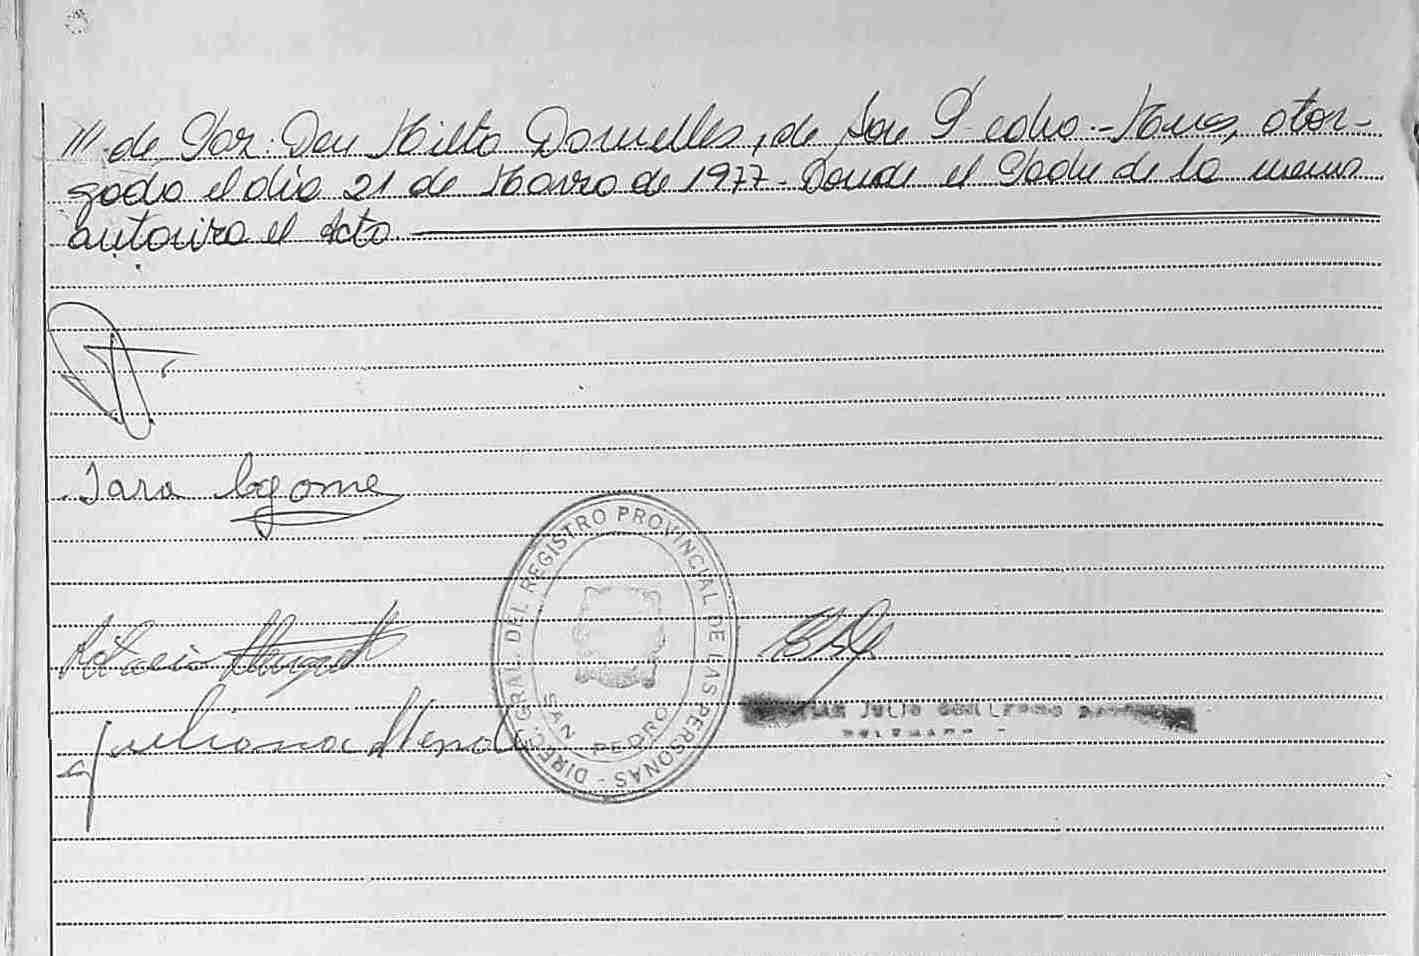 /// de Paz Don Milto Dornelles, de San Pedro - Mnes, otor-
gado el dia 21 de Marzo de 1977 - Donde el Padre de la misma
autoriza el Acto
Iara Gome
Juliana
DIREC. GRAL. DEL REGISTRO PROVINCIAL DE LAS PERSONAS -
SAN PEDRO
JULIO GUILLERMO